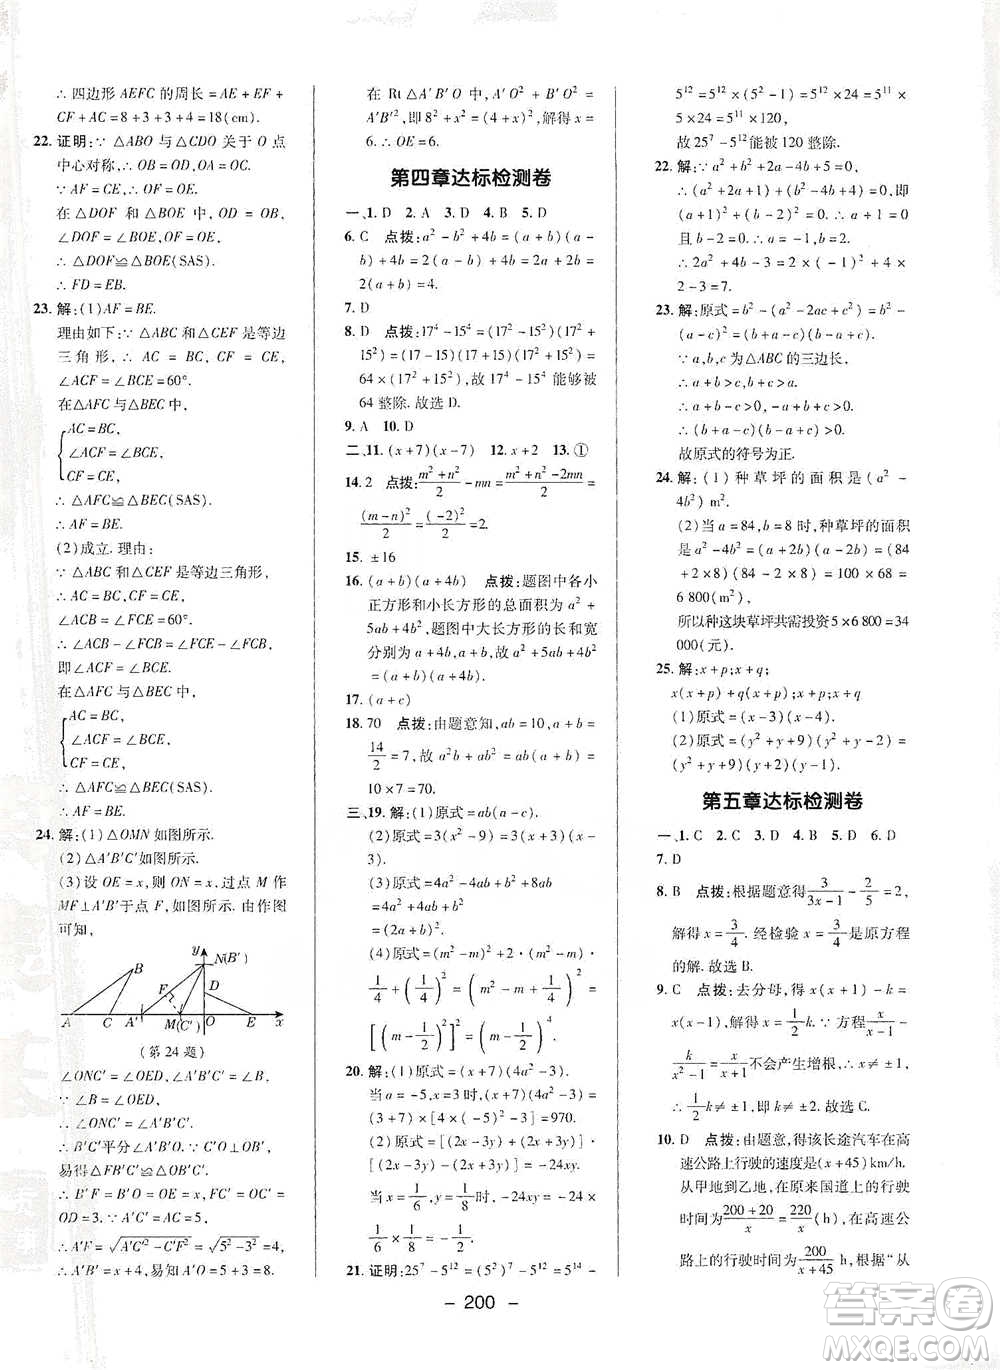 ∴ 四边形 AEFC 的周长 = AE + EF +
CF + AC = 8 + 3 + 3 + 4 = 18(cm).
22. 证明:∵ △ABO 与 △CDO 关于 O 点
中心对称,∴ OB = OD,OA = OC.
∵ AF = CE,∴ OF = OE.
在 △DOF 和 △BOE 中,OD = OB,
∠DOF = ∠BOE,OF = OE,
∴ △DOF≌△BOE(SAS).
∴ FD = EB.
23. 解:(1)AF = BE.
理由如下:∵ △ABC 和 △CEF 是等边
三角形,∴ AC = BC,CF = CE,
∠ACF = ∠BCE = 60°.
在 △AFC 与 △BEC 中,
AC = BC,
∠ACF = ∠BCE,
CF = CE,
∴ △AFC≌△BEC(SAS).
∴ AF = BE.
(2)成立. 理由:
∵ △ABC 和 △CEF 是等边三角形,
∴ AC = BC,CF = CE,
∠ACB = ∠FCE = 60°.
∴ ∠ACB - ∠FCB = ∠FCE - ∠FCB,
即 ∠ACF = ∠BCE.
在 △AFC 与 △BEC 中,
AC = BC,
∠ACF = ∠BCE,
CF = CE,
∴ △AFC≌△BEC(SAS).
∴ AF = BE.
24. 解:(1)△OMN 如图所示.
(2)△A′B′C′如图所示.
(3)设 OE = x,则 ON = x. 过点 M 作
MF⊥A′B′于点 F(如图所示). 由作图
可知,
y N(B′) B F D A C A′ M(C′) O E x
(第 24 题)
∠ONC′ = ∠OED,∠A′B′C′ = ∠B.
∵ ∠B = ∠OED,
∴ ∠ONC′ = ∠A′B′C′.
∴ B′C′平分∠A′B′O. ∵ C′O⊥OB′,
易得 △FB′C′≌△OB′C′.
∴ B′F = B′O = OE = x,FC′ = OC′ =
OD = 3. ∵ A′C′ = AC = 5,
∴ A′F = √(A′C′² - C′F²) = √(5² - 3²) = 4,
∴ A′B′ = x + 4,A′O = 5 + 3 = 8.
在 Rt △A′B′O 中,A′O² + B′O² =
A′B′²,即 8² + x² = (x + 4)²,解得 x =
6. ∴ OE = 6.
第四章达标检测卷
一、1. D 2. A 3. D 4. B 5. D
6. C 点拨:a² - b² + 4b = (a + b)(a -
b) + 4b = 2(a - b) + 4b = 2a + 2b =
2(a + b) = 4.
7. D
8. D 点拨:17⁴ - 15⁴ = (17² - 15²)(17² +
15²) = (17 - 15)(17 + 15)(17² + 15²) =
64 × (17² + 15²),故 17⁴ - 15⁴ 能够被
64 整除. 故选 D.
9. A 10. D
二、11. (x + 7)(x - 7) 12. x + 2 13. ①
14. 2 点拨:(m² + n²)/2 - mn = (m² + n² - 2mn)/2 =
(m - n)²/2 = (-2)²/2 = 2.
15. ±16
16. (a + b)(a + 4b) 点拨:题图中各小
正方形和小长方形的总面积为 a² +
5ab + 4b²,题图中大长方形的长和宽
分别为 a + 4b,a + b,∴ a² + 5ab + 4b²
= (a + b)(a + 4b).
17. (a + c)
18. 70 点拨:由题意知,ab = 10,a + b =
14/2 = 7,故 a²b + ab² = ab(a + b) =
10 × 7 = 70.
三、19. 解:(1)原式 = ab(a - c);
(2)原式 = 3(x² - 9) = 3(x + 3)(x -
3);
(3)原式 = 4a² - 4ab + b² + 8ab
= 4a² + 4ab + b²
= (2a + b)²;
(4)原式 = (m² - m)² + 2·(m² - m)·
1/4 + (1/4)² = (m² - m + 1/4)²
= [(m - 1/2)²]² = (m - 1/2)⁴.
20. 解:(1)原式 = (x + 7)(4a² - 3).
当 a = -5,x = 3时,(x + 7)(4a² - 3) =
(3 + 7) × [4 × (-5)² - 3] = 970.
(2)原式 = [(2x - 3y) + (2x + 3y)]
[(2x - 3y) - (2x + 3y)] = -24xy.
当 x = 1/6,y = 1/8 时,-24xy = -24 ×
1/6 × 1/8 = -1/2.
21. 证明:∵ 25⁷ - 5¹² = (5²)⁷ - 5¹² = 5¹⁴ -
5¹² = 5¹² × (5² - 1) = 5¹² × 24 = 5¹¹ ×
5 × 24 = 5¹¹ × 120,
故 25⁷ - 5¹² 能被 120 整除.
22. 解:∵ a² + b² + 2a - 4b + 5 = 0,
∴ (a² + 2a + 1) + (b² - 4b + 4) = 0,即
(a + 1)² + (b - 2)² = 0. ∴ a + 1 = 0
且 b - 2 = 0. ∴ a = -1,b = 2.
∴ 2a² + 4b - 3 = 2 × (-1)² + 4 ×
2 - 3 = 7.
23. 解:原式 = b² - (a² - 2ac + c²) = b² -
(a - c)² = (b + a - c)(b - a + c).
∵ a,b,c 为△ABC 的三边长,
∴ a + b > c,b + c > a.
∴ b + a - c > 0,b - a + c > 0.
∴ (b + a - c)(b - a + c) > 0.
故原式的符号为正.
24. 解:(1)种草坪的面积是(a² -
4b²) m².
(2)当 a = 84,b = 8 时,种草坪的面积
是 a² - 4b² = (a + 2b)(a - 2b) = (84
+ 2 × 8)(84 - 2 × 8) = 100 × 68 =
6 800(m²),
所以种这块草坪共需投资 5 × 6 800 = 34
000(元).
25. 解:x + p;x + q;
x(x + p) + q(x + p);(x + p)(x + q)
(1)原式 = (x - 3)(x - 4).
(2)原式 = (y² + y + 9)(y² + y - 2) =
(y² + y + 9)(y + 2)(y - 1).
第五章达标检测卷
一、1. C 2. C 3. D 4. B 5. D 6. D
7. D
8. B 点拨:根据题意得 3/(3x - 1) - 2/5 = 2,
解得 x = 3/4. 经检验 x = 3/4 是原方程
的解. 故选 B.
9. C 点拨:去分母,得 x(x + 1) - k =
x(x - 1),解得 x = 1/2 k. ∵ 方程 x/(x - 1) -
k/(x² - 1) = x/(x + 1) 不会产生增根,∴ x ≠ ±1,
∴ 1/2 k ≠ ±1,即 k ≠ ±2. 故选 C.
10. D 点拨:由题意,得该长途汽车在高
速公路上行驶的速度是(x + 45) km/h.
从甲地到乙地,在原来国道上的行驶
时间为 (200 + 20)/x = 220/x (h),在高速公
路上的行驶时间为 200/(x + 45) h. 根据“从
- 200 -
答案卷
MXQE.COM